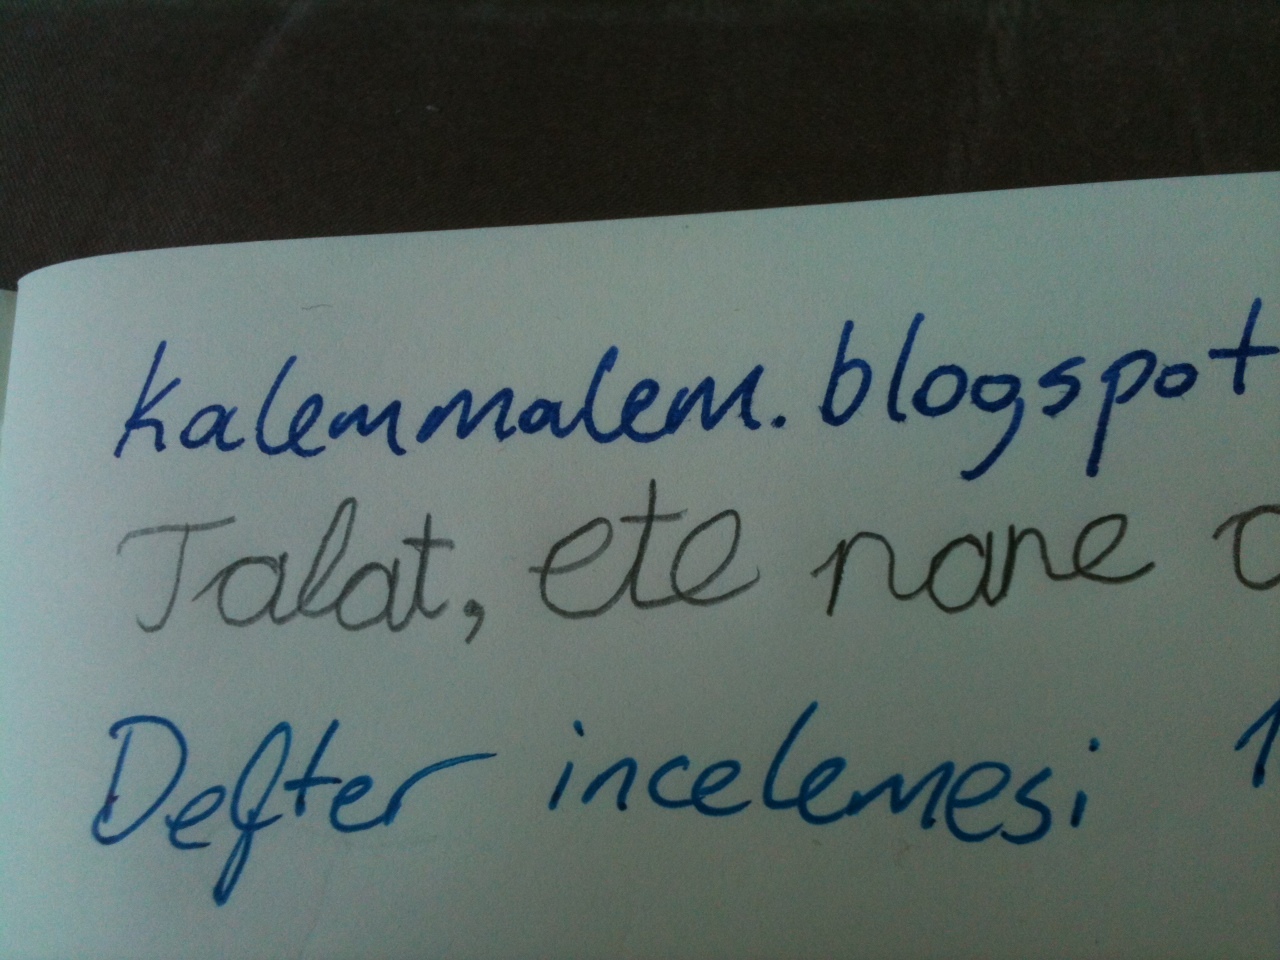 kalemmalem.blogspot
Talat, ete nane
Defter incelemesi 1